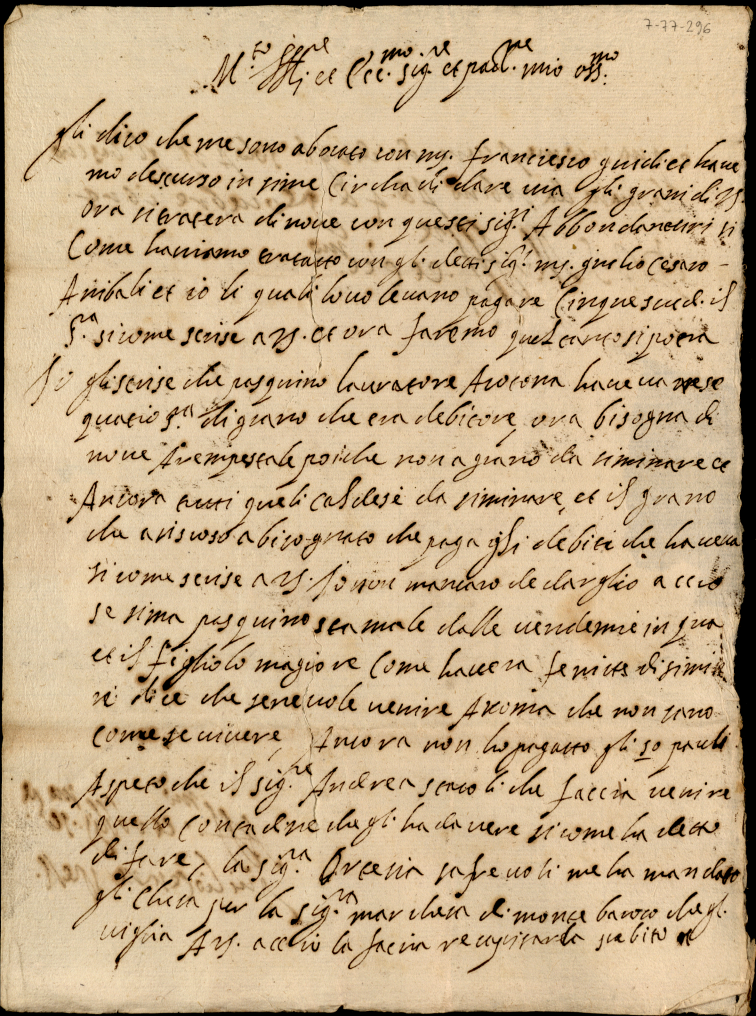 7-77-296
M.to Ill.re et Ecc.mo sig.re et pad.ne mio oss.mo
gli dico che me sono abocato con ms. franciesco guidi et have
mo descurso in sime Circha di dare via gli grani di VS.
ora si tratera di nove con questi sig.ri Abbondantieri si
Come haviamo tratatto con gli detti sig.ri ms. giulio cesaro
Anibali et io li quali lo volevano pagare Cinque scud. il
r.o si come scrise a VS. et ora faremo quel tanto si potra
Io gli scrise che pasquino lavratore Arotorna haveva rese
quatro r.a di grano che era debitore, ora bisogna di
nove Arempestale poiche non a grano da siminare et
Ancora tutti queli caldese da siminare, et il grano
che a riscoso a bisogniato che paga gli debiti che haveva
si come scrise a VS. Io non mancaro de darglio accio
se sima pasquino sta male dalle vendemie in qua
et il figliolo magiore Come havera fenite di simin
re dice che se ne vole venire A roma che non sano
Come se vivere, Ancora non ho pagatto gli 50 pauli
Aspeto che il sig.re Andrea stacoli che faccia venire
quello Contadine che gli ha da vere si come ha detto
di fare, la sig.ra Ortenia me ha mandato
gli per la sig.ra marchesa di monte baroco che gl.
A VS. accio la faccia recapitarla subito